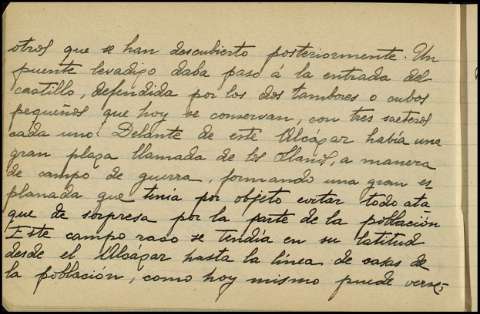 otros que se han descubierto posteriormente. Un
puente levadizo daba paso a la entrada del
castillo, defendida por los dos tambores o cubos
pequeños que hoy se conservan, con tres saeteras
cada uno. Delante de este Alcázar había una
gran plaza llamada de los Llanos, a manera
de campo de guerra, formando una gran es
planada que tenía por objeto evitar todo ata
que de sorpresa por la parte de la población
Este campo raso se tendía en su latitud
desde el Alcázar hasta la línea de casas de
la población, como hoy mismo puede verse,